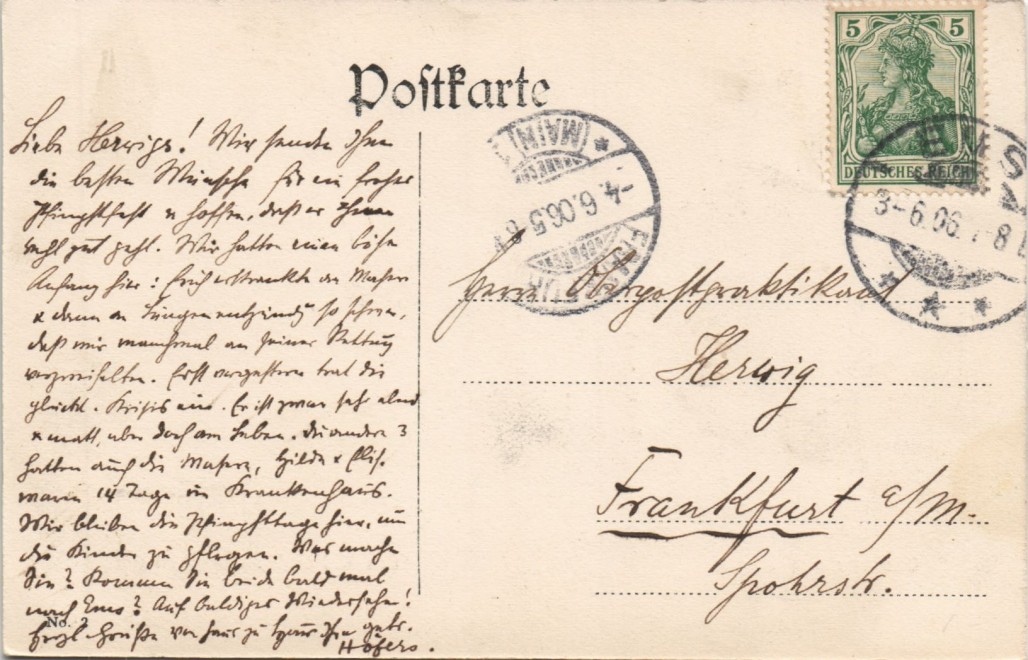 Postkarte
5 5
DEUTSCHES REICH
Liebe Herwigs! Wir senden Ihnen
die besten Wünsche für ein frohes
Pfingstfest u hoffen, daß es Ihnen
recht gut geht. Wir hatten einen bösen
Anfang hier: Erich erkrankte an Masern
u dann an Lungenentzündg so schwer,
daß wir manchmal an seiner Rettung
verzweifelten. Erst vorgestern trat die
glückl. Krisis ein. Er ist zwar sehr elend
u matt, aber doch am Leben. Die andern 3
hatten auch die Masern, Hilde u Elis.
waren 14 Tage im Krankenhaus.
Wir bleiben die Pfingsttage hier, um
die Kinder zu pflegen. Was machen
Sie? Kommen Sie beide bald mal
nach Ems? Auf baldiges Wiedersehn!
Herzl. Grüße von Haus zu Haus Ihre getr.
Höfers.
No. 2
MAIN
-4.6.06.5-6
EMS
3-6.06. 7-8
Herrn Oberpostpraktikant
Herwig
Frankfurt a/M.
Spohrstr.